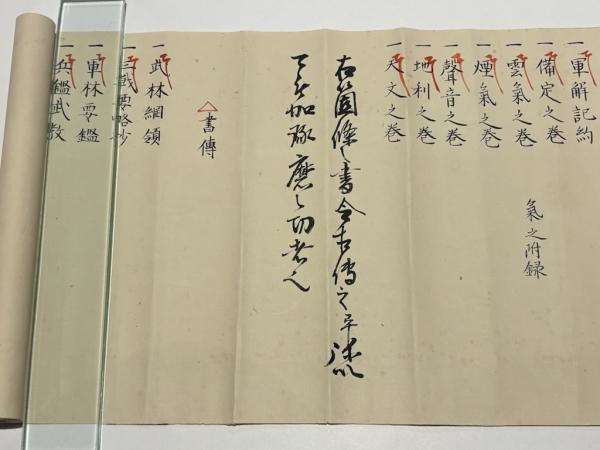 一 軍解記約
一 備定之巻
一 雲氣之巻
氣之附録
一 煙氣之巻
一 聲音之巻
一 地利之巻
一 天文之巻
右箇條之書令相傳之畢
猶以
琢磨之功者也
書傳
一 武林綱領
一 三戦要略抄
一 軍林要鑑
一 兵鑑武教